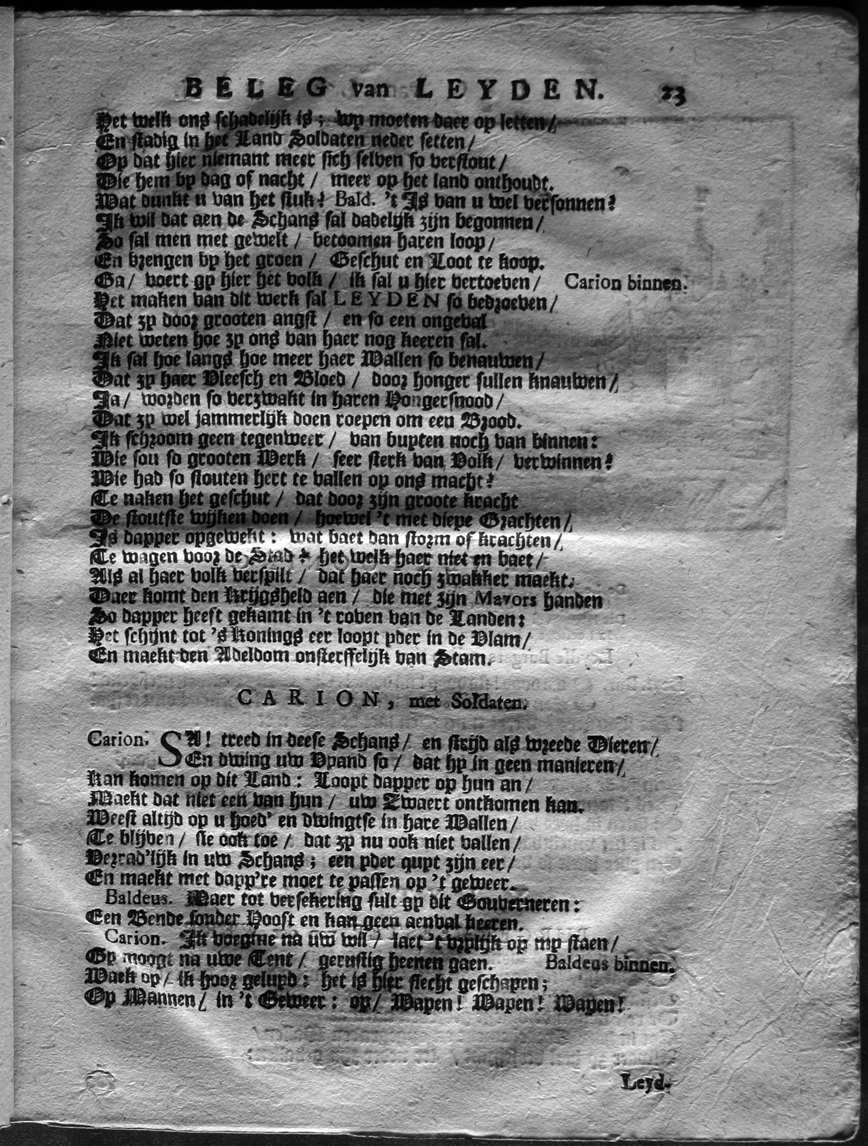 BELEG van LEYDEN. 23
Het welk ons schadelijk is; wy moeten daer op letten/
En stadig in het Land Soldaten neder setten/
Op dat hier niemant meer sich selven so verstout/
Die hem by dag of nacht / meer op het land onthoudt.
Wat dunkt u van het stuk? Bald. 't Is van u wel versonnen?
Ik wil dat aen de Schans sal dadelijk zijn begonnen/
So sal men met gewelt / betoomen haren loop/
En brengen by het groen / Geschut en Loot te koop.
Ga/ voert gy hier het volk / ik sal u hier vertoeven/ Carion binnen.
Het maken van dit werk sal LEYDEN so bedroeven/
Dat zy door grooten angst / en so een ongeval
Niet weten hoe zy ons van haer nog keeren sal.
Ik sal hoe langs hoe meer haer Wallen so benauwen/
Dat zy haer Vleesch en Bloed / door honger sullen knauwen/
Ja/ worden so verzwakt in haren Hongersnood/
Dat zy wel jammerlijk doen roepen om een Brood.
Ik schroom geen tegenweer / van buyten noch van binnen:
Wie sou so grooten Werk / seer sterk van Volk/ verwinnen?
Wie had so stouten hert te vallen op ons macht?
Te naken het geschut / dat door zijn groote kracht
De stoutste wijken doen / hoewel 't met diepe Grachten/
Is dapper opgewekt: wat baet dan storm of krachten/
Te wagen voor de Stad? het welk haer niet en baet/
Als al haer volk verspilt / dat haer noch zwakker maekt.
Daer komt den Krijgsheld aen / die met zijn Mavors handen
So dapper heeft gekamt in 't roven van de Landen:
Het schijnt tot 's Konings eer loopt yder in de Vlam/
En maekt den Adeldom onsterffelijk van Stam.
CARION, met Soldaten.
Carion. SA! treed in deese Schans/ en strijd als wreede Dieren/
En dwing uw Vyand so/ dat hy in geen manieren/
Kan komen op dit Land: Loopt dapper op hun an/
Maekt dat niet een van hun / uw Zwaert ontkomen kan.
Weest altijd op u hoed' en dwingtse in hare Wallen/
Te blijven/ sie ook toe / dat zy nu ook niet vallen/
Verrad'lijk in uw Schans; een yder quyt zijn eer/
En maekt met dapp're moet te passen op 't geweer.
Baldeus. Maer tot versekering sult gy dit Gouverneren:
Een Bende sonder Hooft en kan geen aenval keeren.
Carion. Ik voegme na uw wil/ laet 't vrylijk op my staen/
Gy moogt na uwe Tent/ gerustig heenen gaen. Baldeus binnen.
Waek op/ ik hoor geluyd: het is hier slecht geschapen;
Op Mannen/ in 't Geweer: op/ Wapen! Wapen! Wapen!
Leyd.